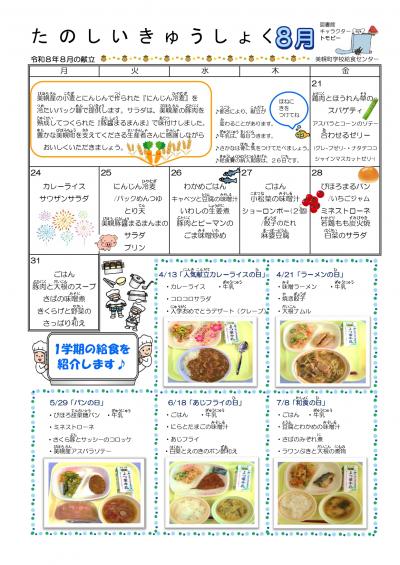 たのしいきゅうしょく 8月
図書館
キャラクター
トモピー
令和8年8月の献立
美幌町学校給食センター
月 火 水 木 金
美幌産の小麦とにんじんで作られた『にんじん冷麦』を
つたいパック麺で提供します。サラダは、美幌産の豚肉を
熟成してつくられた『豚醤まるまんま』で味付けしました。
豊かな美幌町を支えてくださる生産者さんに感謝しながら
おいしくいただきましょう。
ほねに
きを
つけてね
♪都合により、献立が
変わることがあります。
♪牛乳は、毎日つきます。
♪さかなほねに気をつけてたべましょう。
21
鶏肉とほうれん草の
スパゲティ
アスパラとコーンのソテー
きらわせるゼリー
24
カレーライス
サウザンサラダ
25
にんじん冷麦
パックめんつゆ
とり天
美幌豚醤まるまんまの
サラダ
プリン
26
わかめごはん
キャベツと豆腐の味噌汁
いわしの生姜煮
豚肉とピーマンの
ごま味噌炒め
27
ごはん
小松菜の味噌汁
ショーロンポー(2個)
餃子のたれ
麻婆豆腐
28
びほろまるパン
いちごジャム
ミネストローネ
若鶏もも炭火焼
白菜のサラダ
31
ごはん
豚肉と大根のスープ
さばの味噌煮
きくらげと野菜の
さっぱり和え
1学期の給食を
紹介します♪
4/13「人気献立カレーライスの日」
・カレーライス ・牛乳
・コロコロサラダ
・入学おめでとうデザート(クレープ)
4/21「ラーメンの日」
・味噌ラーメン ・牛乳
・焼き餃子
・大根ナムル
5/29「パンの日」
・びほろ甜菜糖パン ・牛乳
・ミネストローネ
・さくら豚とサッシーのコロッケ
・美幌産アスパラソテー
6/18「あじフライの日」
・ごはん ・牛乳
・にらとたまごの味噌汁
・あじフライ
・白菜とえのきのポン酢和え
7/8「和食の日」
・ごはん ・牛乳
・豆腐とわかめの味噌汁
・さばのみぞれ煮
・ラワンぶきと大根の煮物